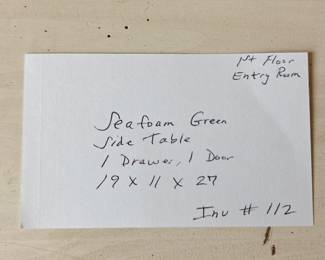 1st Floor
Entry Room
Seafoam Green
Side Table
1 Drawer, 1 Door
19 x 11 x 27
Inv # 112